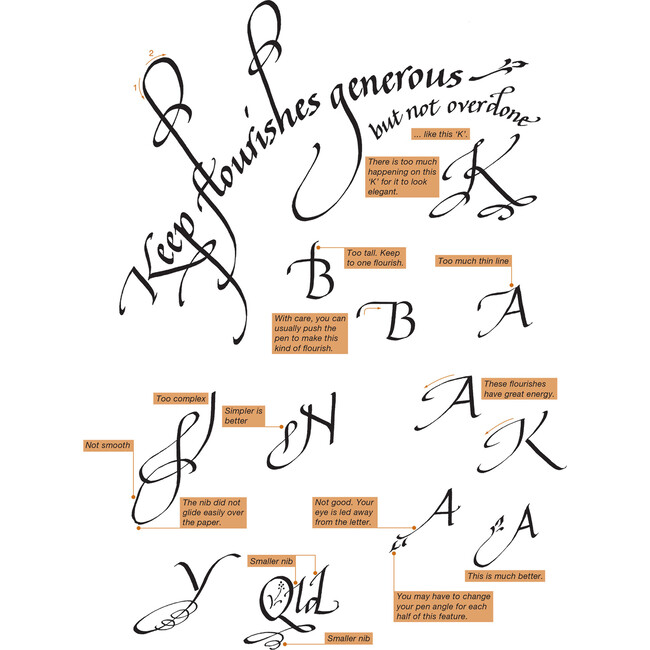 2
1
Keep flourishes generous
but not overdone
... like this 'K'.
There is too much
happening on this
'K' for it to look
elegant.
K
B
Too tall. Keep
to one flourish.
Too much thin line
A
With care, you can
usually push the
pen to make this
kind of flourish.
B
Too complex
Simpler is
better
N
Not smooth
The nib did not
glide easily over
the paper.
A
These flourishes
have great energy.
K
Not good. Your
eye is led away
from the letter.
A
A
This is much better.
You may have to change
your pen angle for each
half of this feature.
Y
Smaller nib
Qld
Smaller nib